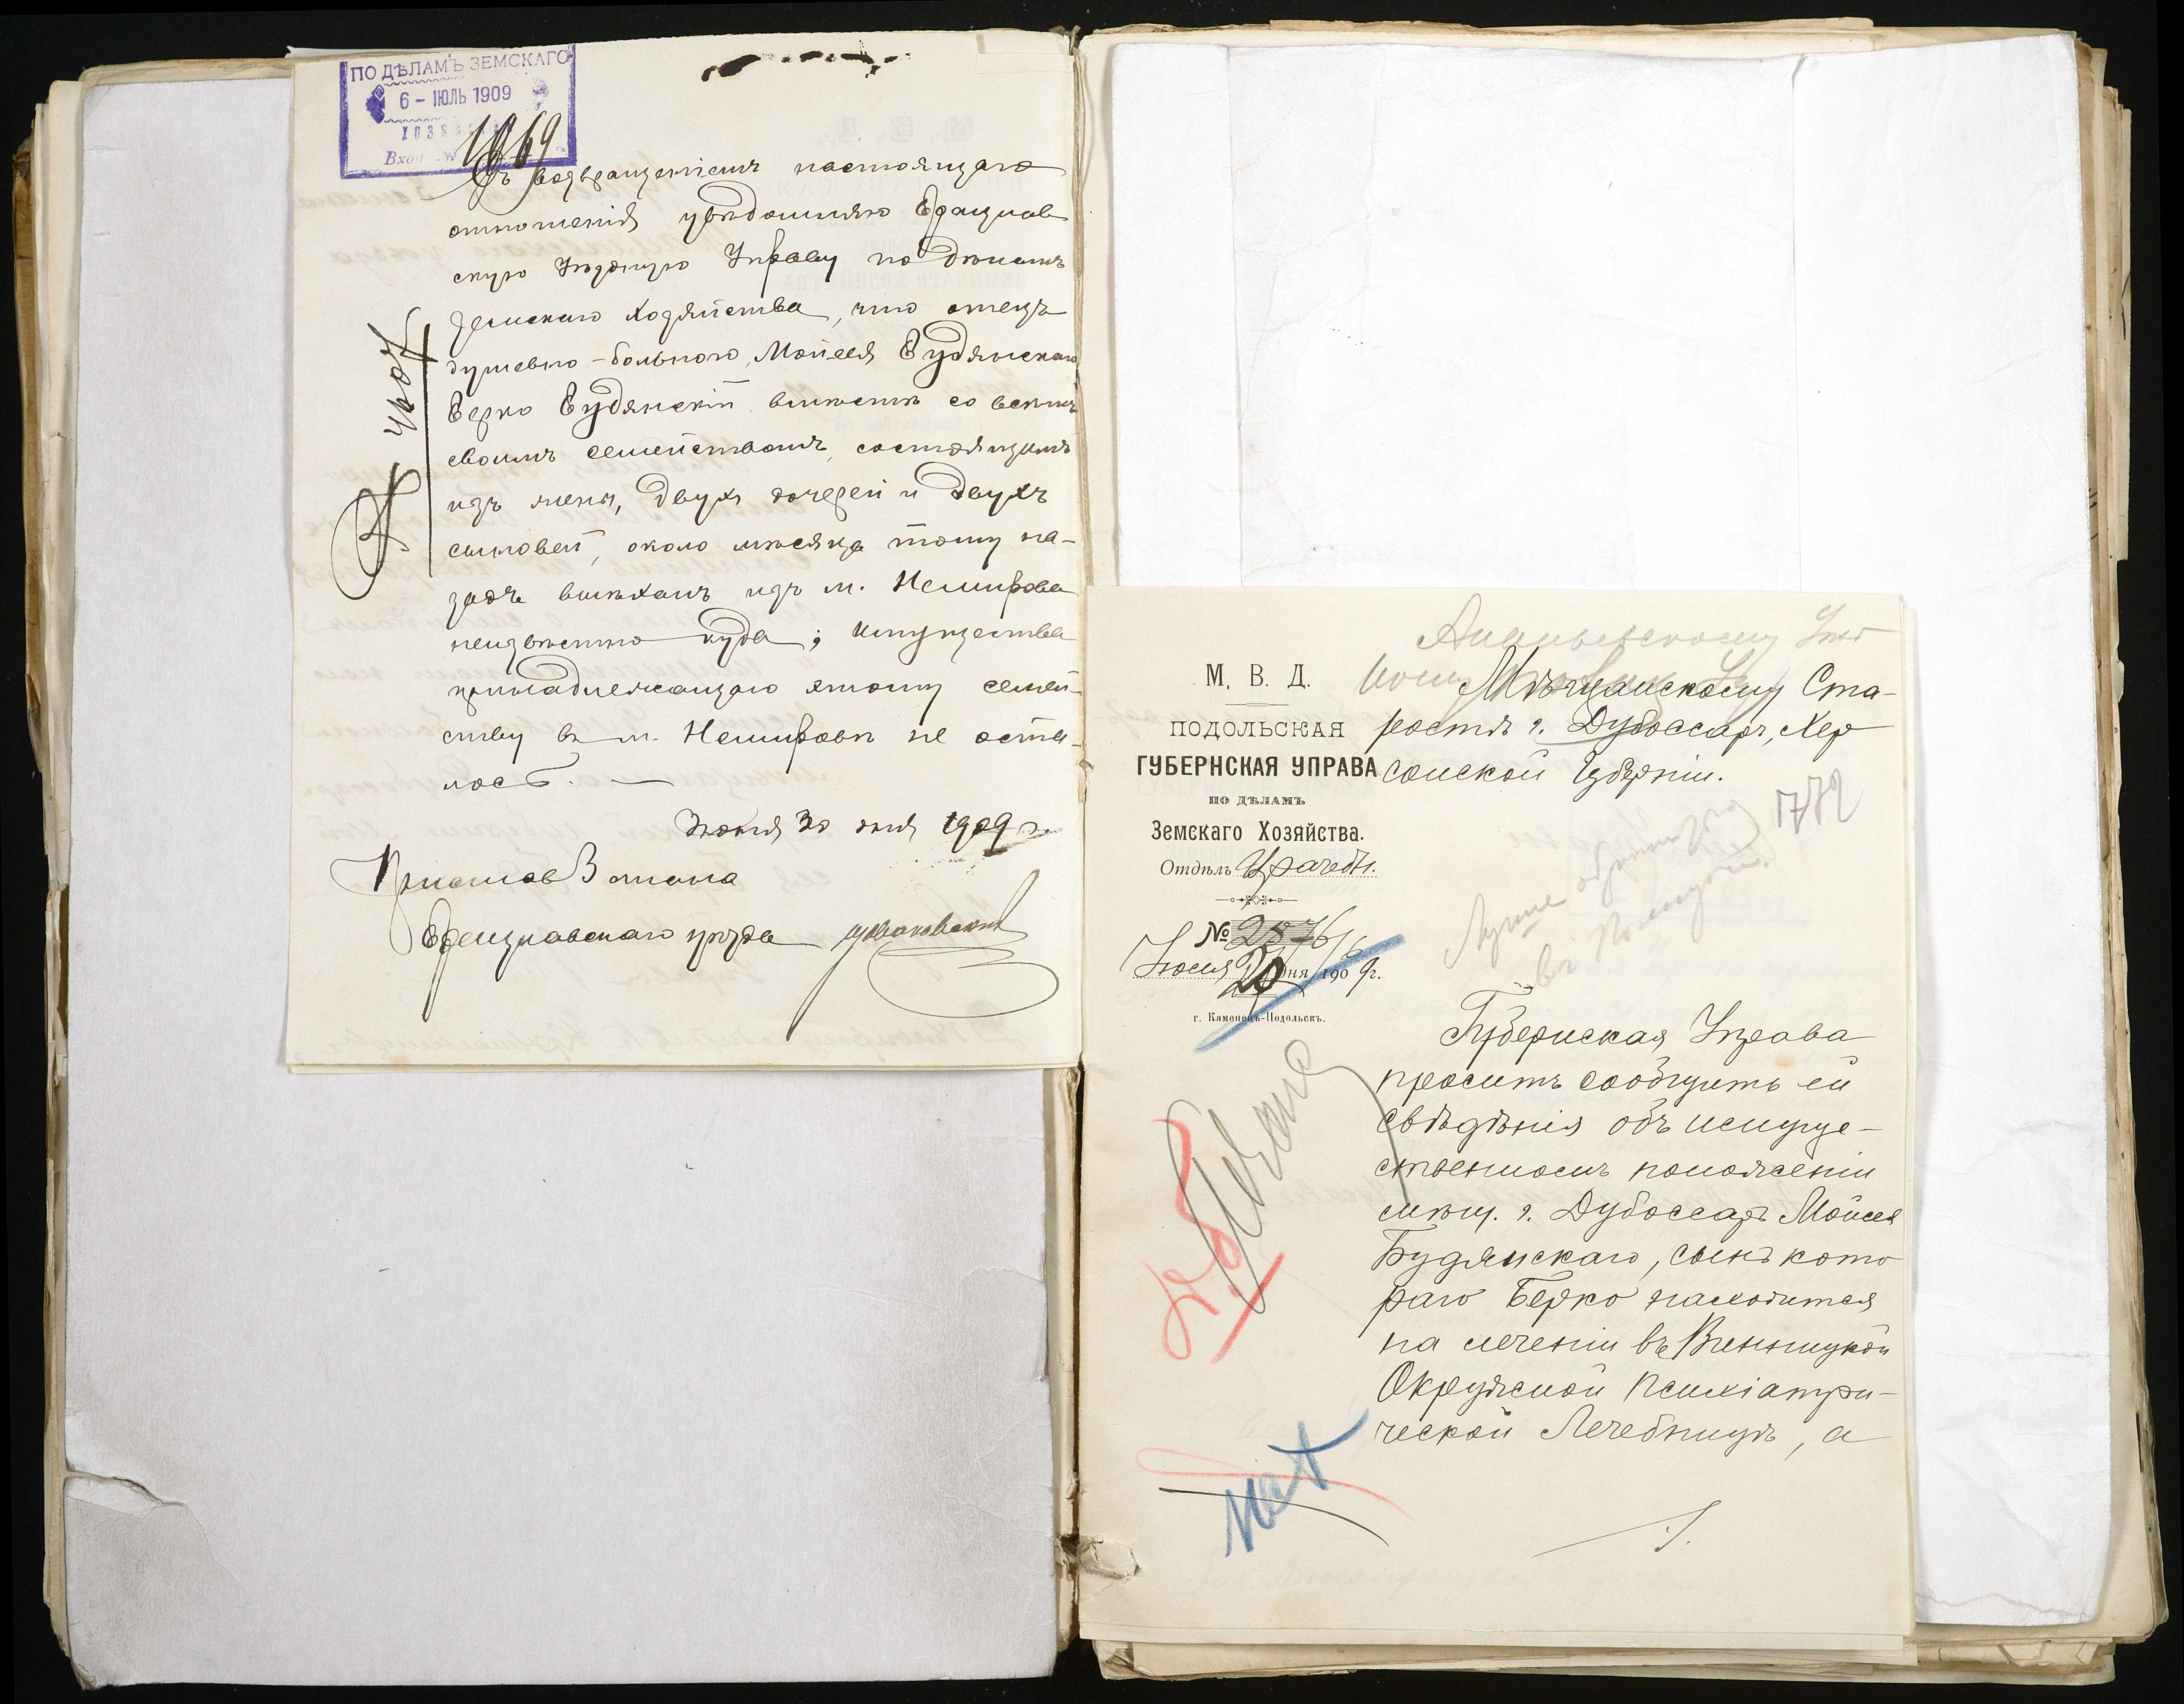 ПО ДѢЛАМЪ ЗЕМСКАГО
6 – ІЮЛЬ 1909
1069
Съ возвращеніемъ настоящаго
отношенія увѣдомляю Брацлав
скую Уѣздную Управу по дѣламъ
земскаго хозяйства, что отецъ
душевно-больного Мойсея Будянскаго
Берко Будянскій вмѣстѣ со всѣмъ
своимъ семействомъ, состоящимъ
изъ жены, двухъ дочерей и двухъ
сыновей, около мѣсяца тому на-
задъ выѣхалъ изъ м. Немирова
неизвѣстно куда; имущества
принадлежащаго этому семей-
ству въ м. Немировѣ не оста-
лось. —
Іюня 30 дня 1909 г.
Приставъ 3 стана
Брацлавскаго уѣзда
М. В. Д.
ПОДОЛЬСКАЯ
ГУБЕРНСКАЯ УПРАВА
ПО ДѢЛАМЪ
Земскаго Хозяйства.
Отдѣлъ Врачебн.
№ 2876
Іюля 20 дня 1909 г.
г. Каменецъ-Подольскъ.
Ананьевскому Уѣзд
Мѣщанскому Ста-
ростѣ г. Дубоссаръ, Хер
сонской Губерніи.
1772
Лучше
въ Полицію
Губернская Управа
проситъ сообщить ей
свѣдѣнія объ имуще-
ственномъ положеніи
мѣщ. г. Дубоссаръ Мойсея
Будянскаго, сынъ кото
раго Берко находится
на леченіи въ Винницкой
Окружной Психіатри-
ческой Лечебницѣ, а